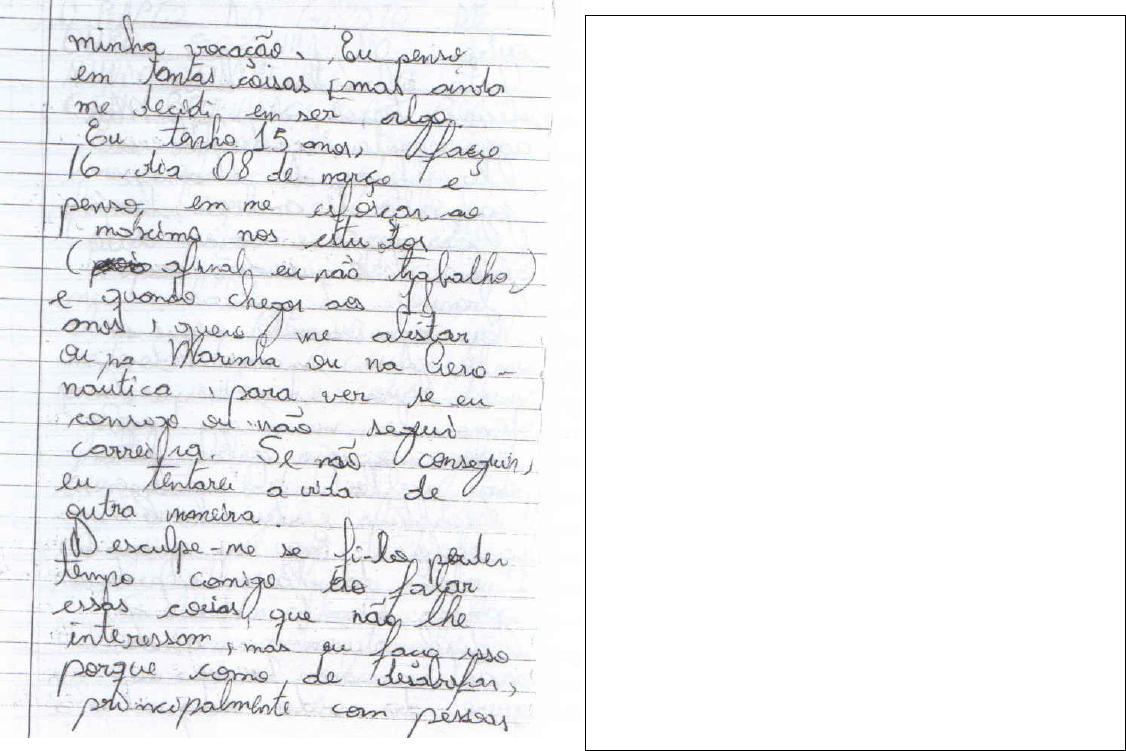 minha vocação. Eu penso
em tantas coisas, mas ainda
me decidi em ser algo.
Eu tenho 15 anos, faço
16 dia 08 de março e
penso em me esforçar ao
máximo nos estudos
(afinal, eu não trabalho,)
e quando chegar aos 18
anos, quero me alistar
ou na Marinha ou na Aero-
náutica, para ver se eu
consigo ou não seguir
carreira. Se não conseguir,
eu tentarei a vida de
outra maneira.
Desculpe-me se fi-lo perder
tempo comigo ao falar
essas coisas que não lhe
interessam, mas eu faço isso
porque como de desabafar,
principalmente com pessoas